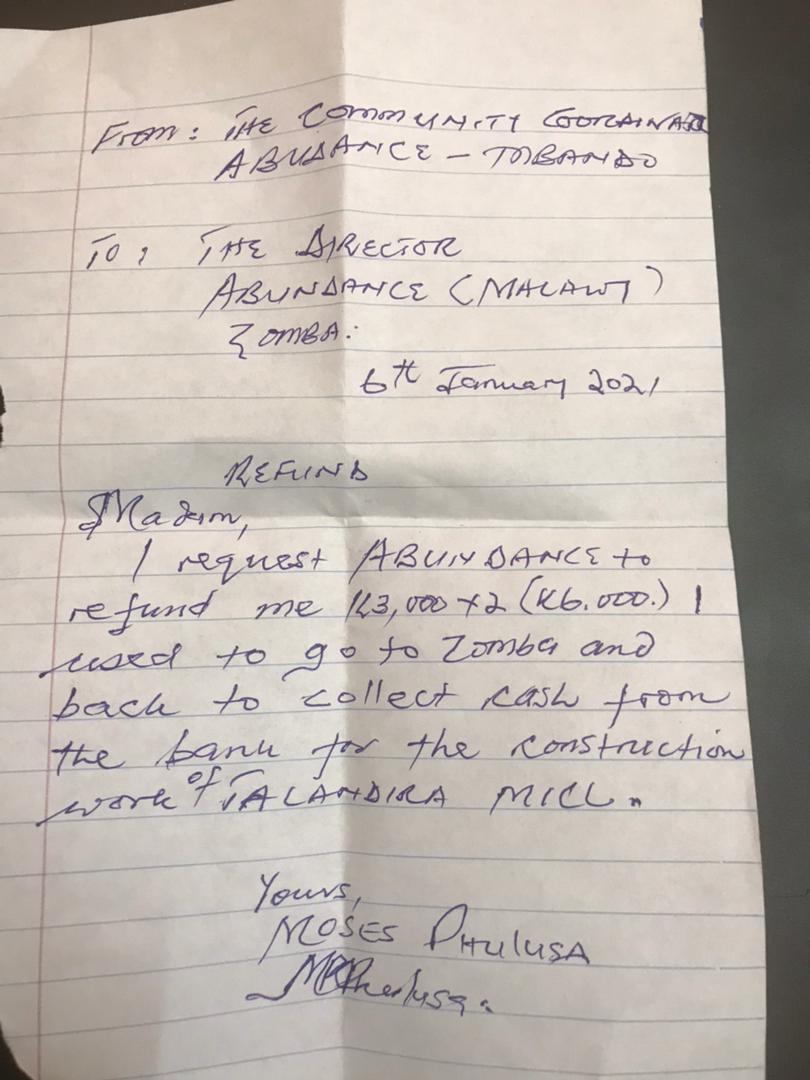 From: THE COMMUNITY COORDINATOR
ABUDANCE - TOBANDO
TO: THE DIRECTOR
ABUNDANCE (MALAWI)
ZOMBA.
6th January 2021
REFUND
Madam,
I request ABUNDANCE to
refund me K3,000 x 2 (K6.000.) I
used to go to Zomba and
back to collect cash from
the bank for the construction
work of TALANDIRA MILL.
Yours,
MOSES PHULUSA
MBPhulusa.